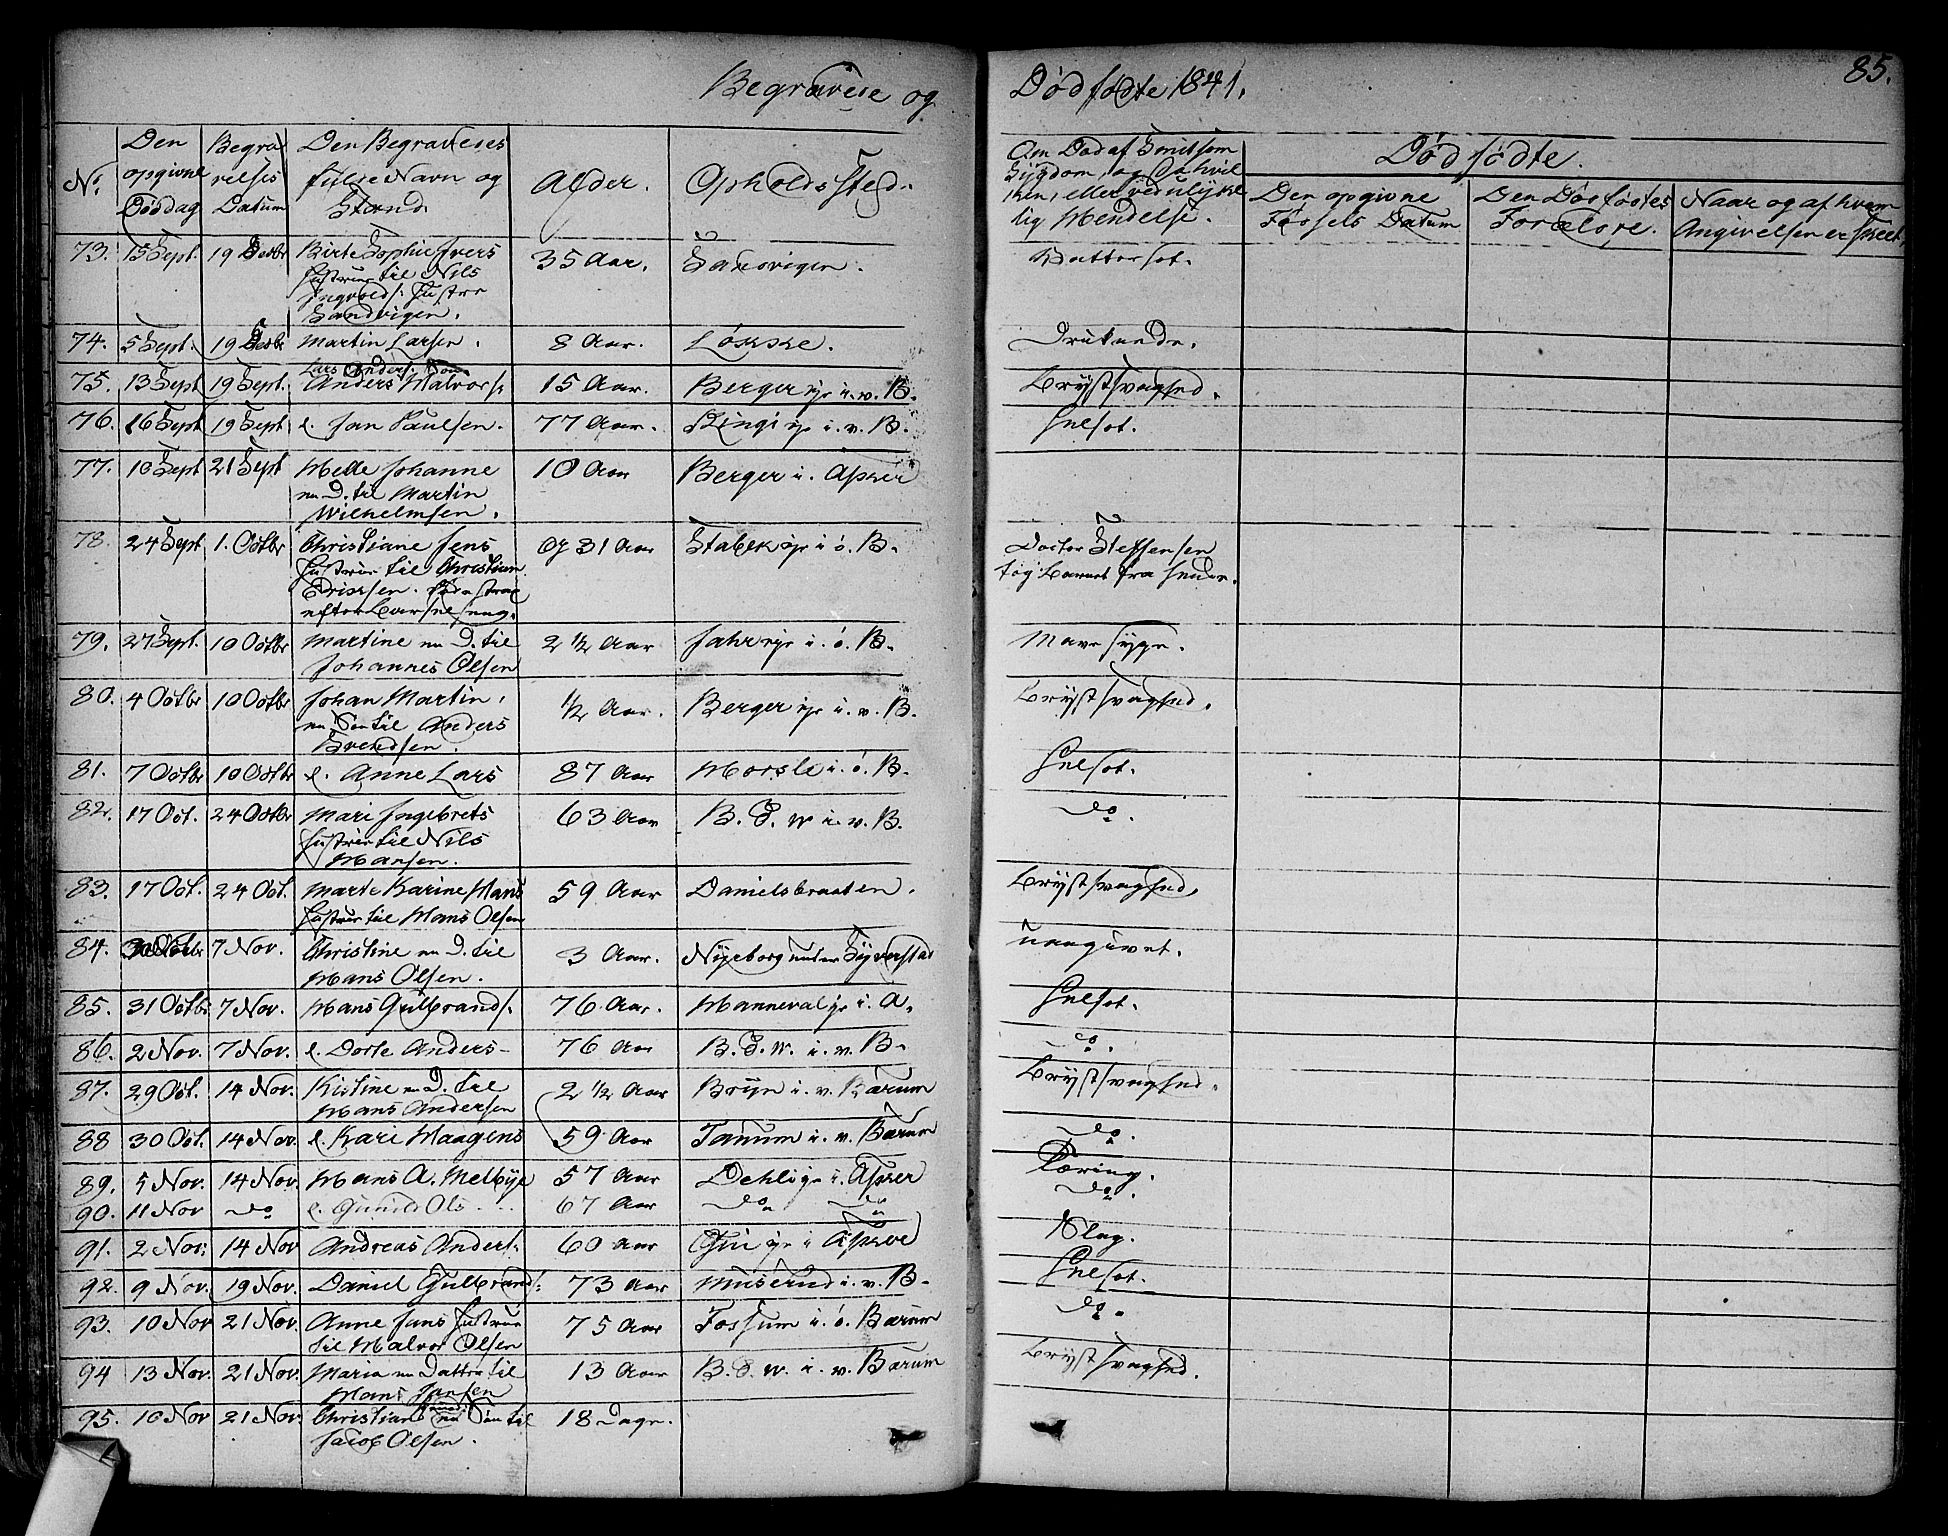 Begravne og
Dødfødte 1841.
85.
No.
Den opgivne Dødsdag
Begravelses Datum
Den Begravenes fulde Navn og Stand
Alder.
Opholdssted.
Om Død af Smitsom Sygdom, og da hvilken, eller ved ulykkelig Hendelse.
Dødfødte.
Den opgivne Fødsels Datum
Den Dødfødtes Forældre.
Naar og af hvem Angivelsen er skeet
73. 15 Sept. 19 Sept. Birte Sophie Ivers 35 Aar. Sandvigen. Vattersot.
Hustrue til Nils
Ingvolds:
Sandvigen.
74. 5 Sept. 19 Martin Larsen. 8 Aar. Løkke. Druknede.
Lars Anders: Søn
75. 13 Sept 19 Sept. Anders Halvors: 15 Aar. Berger ie i. v. B. Brystsvaghed.
76. 16 Sept 19 Sept. e. Jan Paulsen. 77 Aar. Ringi ie i. v. B. Helsot.
77. 10 Sept 21 Sept Helle Johanne 10 Aar Berger i. Asker
u D. til Martin
Wilhelmsen.
78. 24 Sept 1. Octbr Christiane Jens 31 Aar Stabek ie i ø. B. Doctor Steffensen
Hustrue til Christian tog Barnet fra hende.
efter Barselseng.
79. 27 Sept. 10 Octbr Martine u D. til 2 1/2 Aar Jahr eje i. ø. B. Mavesyge.
Johannes Olsen
80. 4 Octbr 10 Octbr Johan Martin, 1/2 Aar. Berger eje i. v. B. Brystsvaghed.
u Søn til Anders
81. 7 Octbr 10 Octbr e. Anne Lars 87 Aar Horsle i. ø. B. Helsot.
82. 17 Oct. 24 Octbr Mari Ingebrets 63 Aar B. S. W i. v. B. do.
Hustrue til Nils
Hansen.
83. 17 Oct. 24 Oct. Marte Karine Hans 59 Aar Danielsbraaten. Brystsvaghed.
Hustrue til Hans Olsen
84. 30 Octbr 7 Nov. Christine u D. til 3 Aar. Nyeborg under Syverstad uangivet.
Hans Olsen.
85. 31 Octbr 7 Nov. Hans Gulbrands: 76 Aar. Hanneval ie i. A. Helsot.
86. 2 Nov. 7 Nov. e. Dorte Anders- 76 Aar B. S. W. i. v. B. do.
87. 29 Oct. 14 Nov. Kistine u D. til 2 1/2 Aar Bryn i. v. Bærum Brystsvaghed.
Hans Andersen
88 30 Oct. 14 Nov. e. Kari Haagens 59 Aar Tanum i. v. Bærum do.
89. 5 Nov. 14 Nov. Hans A. Melbye 57 Aar Dehli ie i. Asker Tæring.
90. 11 Nov do e. Gunild Ols 67 Aar do do do.
91. 2 Nov. 14 Nov Andreas Anders: 60 Aar Gui ie i Asker Slag.
92. 9 Nov. 19 Nov. Daniel Gulbrands: 73 Aar Muserud i. v. B. Helsot.
93. 10 Nov 21 Nov. Anne Jens Hustrue 75 Aar Fossum i. ø. Bærum do.
til Halvor Olsen
94 13 Nov. 21 Nov. Maria u Datter til 13 Aar B. S. W. i. v. Bærum Brystsvaghed.
Hans Jansen
95. 10 Nov 21 Nov. Christian u Søn til 18 Dage.
Jacob Olsen.